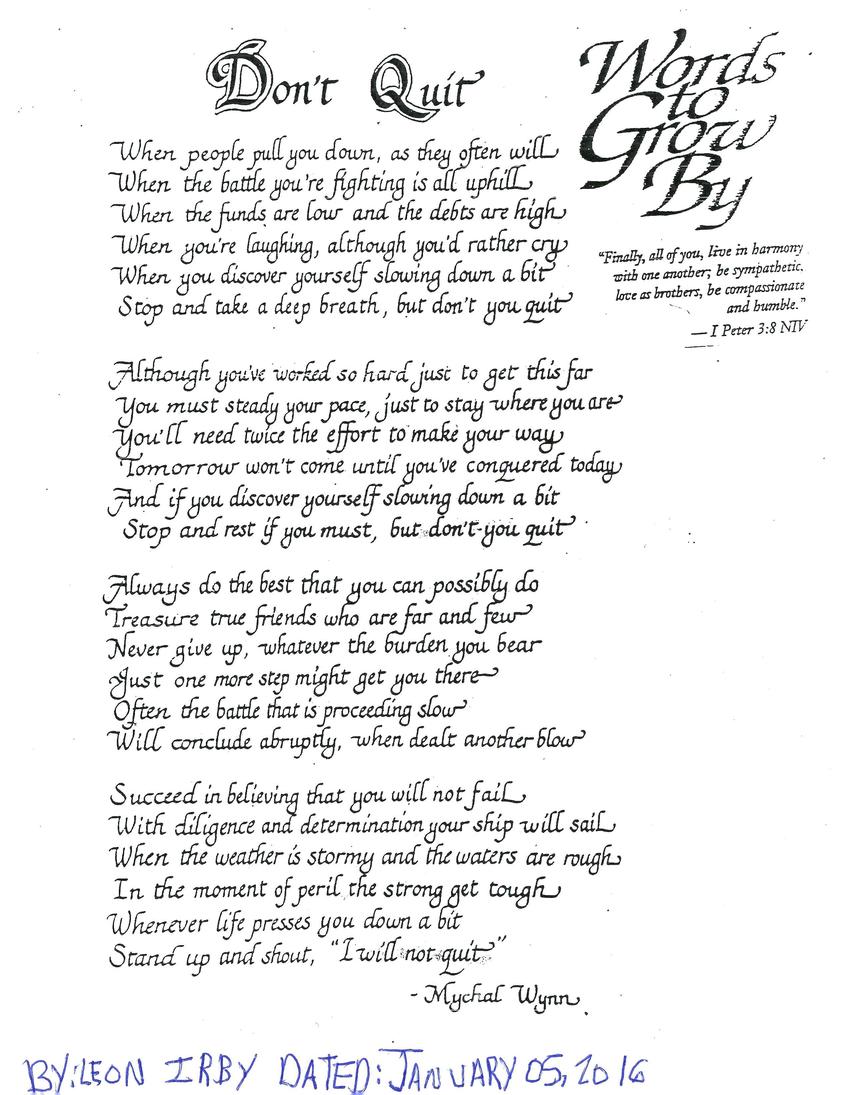 Don't Quit
When people pull you down, as they often will
When the battle you're fighting is all uphill
When the funds are low and the debts are high
When you're laughing, although you'd rather cry
When you discover yourself slowing down a bit
Stop and take a deep breath, but don't you quit
Although you've worked so hard just to get this far
You must steady your pace, just to stay where you are
You'll need twice the effort to make your way
Tomorrow won't come until you've conquered today
And if you discover yourself slowing down a bit
Stop and rest if you must, but don't you quit
Always do the best that you can possibly do
Treasure true friends who are far and few
Never give up, whatever the burden you bear
Just one more step might get you there
Often the battle that is proceeding slow
Will conclude abruptly, when dealt another blow
Succeed in believing that you will not fail
With diligence and determination your ship will sail
When the weather is stormy and the waters are rough
In the moment of peril the strong get tough
Whenever life presses you down a bit
Stand up and shout, "I will not quit"
- Mychal Wynn
Words
to
Grow
By
"Finally, all of you, live in harmony
with one another; be sympathetic,
love as brothers, be compassionate
and humble."
— I Peter 3:8 NIV
BY: LEON IRBY DATED: JANUARY 05, 2016